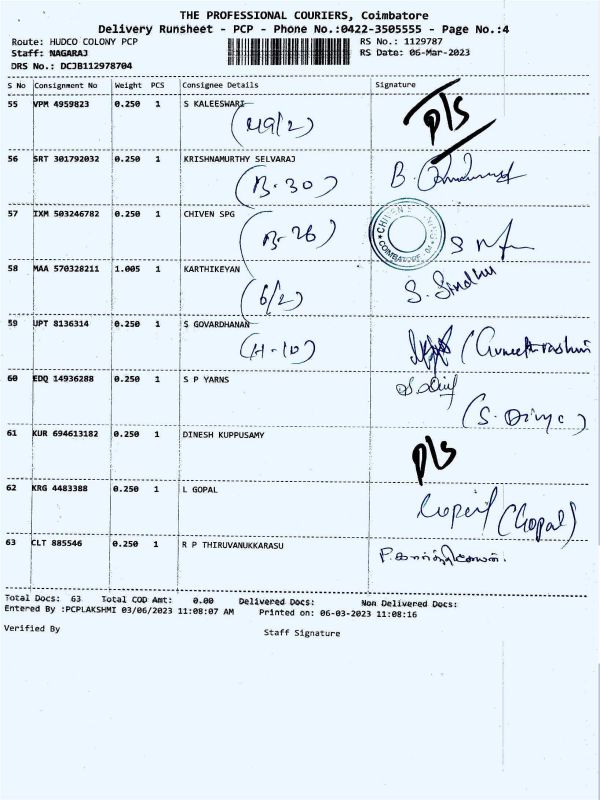 THE PROFESSIONAL COURIERS, Coimbatore
Delivery Runsheet - PCP - Phone No.:0422-3505555 - Page No.:4
Route: HUDCO COLONY PCP RS No.: 1129787
Staff: NAGARAJ RS Date: 06-Mar-2023
DRS No.: DCJB112978704
S No Consignment No Weight PCS Consignee Details Signature
55 VPM 4959823 0.250 1 S KALEESWARI
pls
56 SRT 301792032 0.250 1 KRISHNAMURTHY SELVARAJ
(B-30) B.
57 IXM 503246782 0.250 1 CHIVEN SPG
(B-26)
COIMBATORE
58 MAA 570328211 1.005 1 KARTHIKEYAN
(6/2) S. Sindhu
59 UPT 8136314 0.250 1 S GOVARDHANAN
(H-10)
60 EDQ 14936288 0.250 1 S P YARNS
(S. Divya)
61 KUR 694613182 0.250 1 DINESH KUPPUSAMY
pls
62 KRG 4483388 0.250 1 L GOPAL
(Gopal)
63 CLT 885546 0.250 1 R P THIRUVANUKKARASU
Total Docs: 63 Total COD Amt: 0.00 Delivered Docs: Non Delivered Docs:
Entered By :PCPLAKSHMI 03/06/2023 11:08:07 AM Printed on: 06-03-2023 11:08:16
Verified By Staff Signature